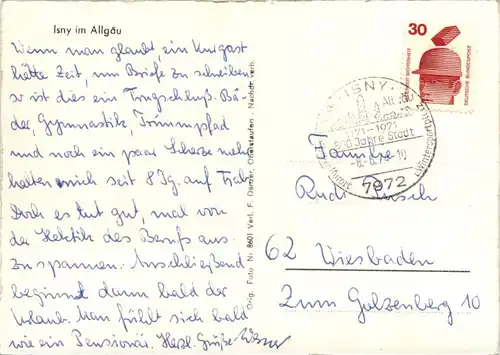 Isny im Allgäu
Wenn man glaubt, ein Kurgast
hätte Zeit, um Briefe zu schreiben
so ist dies ein Trugschluß. Bä-
der, Gymnastik, Trimmpfad
und noch ein paar Scherze mehr
halten mich seit 8 Tg. auf Trab.
Doch es tut gut, mal von
der Hektik des Berufs aus-
zuspannen. Anschließend
beginnt dann bald der
Urlaub. Man fühlt sich bald
wie ein Pensionär. Herzl. Grüße
Orig. Foto Nr. 8601 Verl. F. Danzer, Oberstaufen Nachdr. verb.
30
DEUTSCHE BUNDESPOST
ISNY
1171-1971
800 Jahre Stadt
7972
Familie
Rudi
62 Wiesbaden
Zum Golzenberg 10